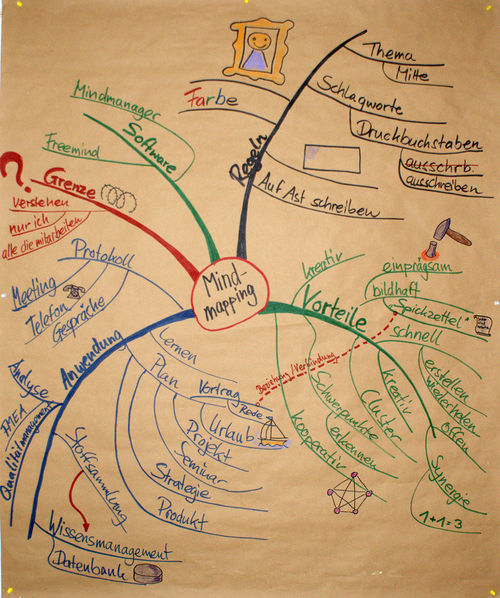 Mind-
mapping
Regeln
Thema
Mitte
Schlagworte
Druckbuchstaben
ausschrb.
ausschreiben
Farbe
Auf Ast schreiben
Software
Mindmanager
Freemind
Grenze
?
verstehen
nur ich
alle die mitarbeiten
Vorteile
kreativ
einprägsam
bildhaft
Spickzettel
schnell
erstellen
wiederholen
offen
kreativ
Cluster
Synergie
1+1=3
Schwerpunkte
erkennen
kooperativ
Beziehung/Verbindung
Anwendung
Protokoll
Meeting
Telefon
Gespräche
Lernen
Plan
Vortrag
Rede
Urlaub
Projekt
Seminar
Strategie
Produkt
Analyse
FMEA
Qualitätsmanagement
Stoffsammlung
Wissensmanagement
Datenbank